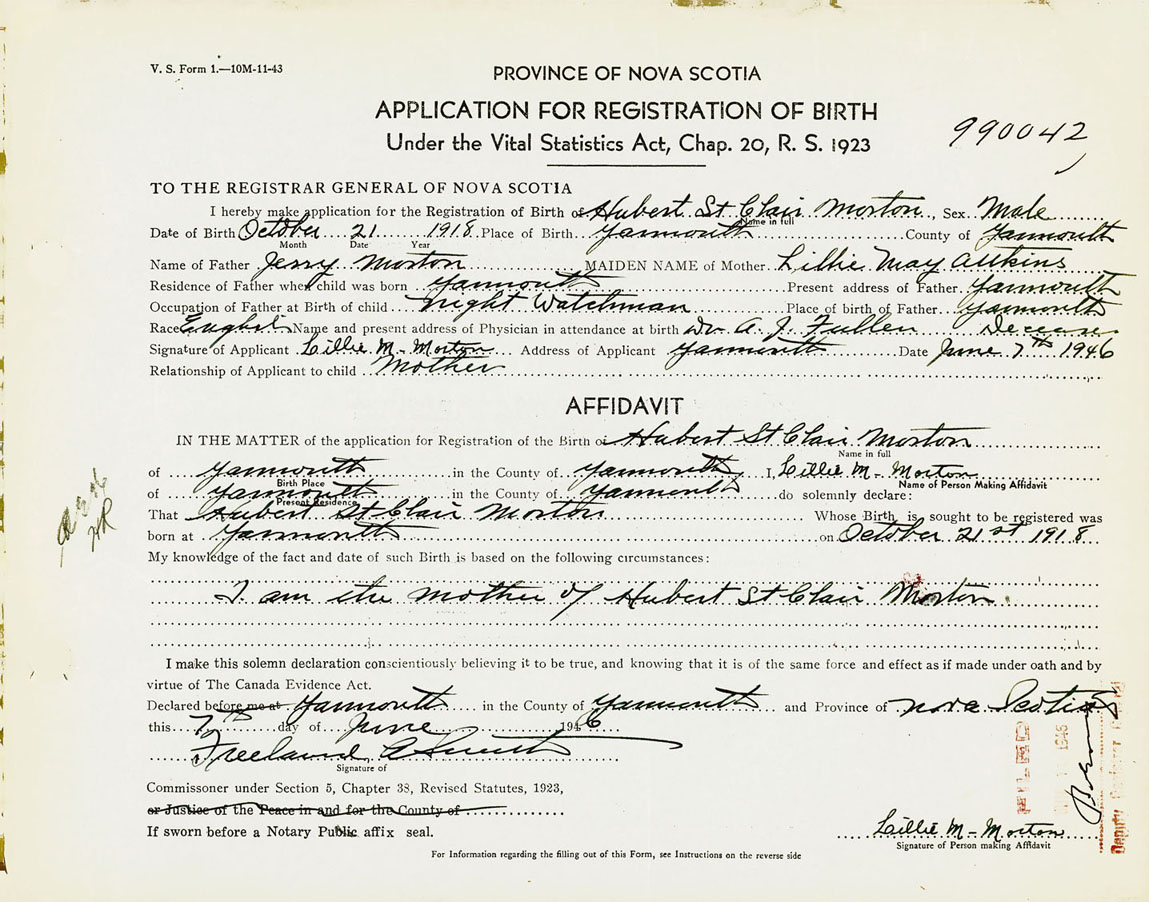 V. S. Form 1.—10M-11-43
PROVINCE OF NOVA SCOTIA
APPLICATION FOR REGISTRATION OF BIRTH
990042
Under the Vital Statistics Act, Chap. 20, R. S. 1923
TO THE REGISTRAR GENERAL OF NOVA SCOTIA
I hereby make application for the Registration of Birth of Hubert St Clair Morton, Sex Male
Name in full
Date of Birth October 21 1918 Place of Birth Yarmouth County of Yarmouth
Month Date Year
Name of Father Jerry Morton MAIDEN NAME of Mother Lillie May Atkins
Residence of Father when child was born Yarmouth Present address of Father Yarmouth
Occupation of Father at Birth of child Night Watchman Place of birth of Father Yarmouth
Race English Name and present address of Physician in attendance at birth Dr. A. J. Fuller
Signature of Applicant Lillie M - Morton Address of Applicant Yarmouth Date June 7th 1946
Relationship of Applicant to child Mother
AFFIDAVIT
IN THE MATTER of the application for Registration of the Birth of Hubert St Clair Morton
Name in full
of Yarmouth in the County of Yarmouth, I, Lillie M - Morton
Birth Place Name of Person Making Affidavit
of Yarmouth in the County of Yarmouth do solemnly declare:
Present Residence
That Hubert St Clair Morton Whose Birth is sought to be registered was
born at Yarmouth on October 21st 1918
My knowledge of the fact and date of such Birth is based on the following circumstances:
I am the mother of Hubert St Clair Morton
I make this solemn declaration conscientiously believing it to be true, and knowing that it is of the same force and effect as if made under oath and by
virtue of The Canada Evidence Act.
Declared before me at Yarmouth in the County of Yarmouth and Province of Nova Scotia
this 7th day of June 1946
Freeland
Signature of
Commissoner under Section 5, Chapter 38, Revised Statutes, 1923,
or Justice of the Peace in and for the County of
If sworn before a Notary Public affix seal.
Lillie M - Morton
Signature of Person making Affidavit
For Information regarding the filling out of this Form, see Instructions on the reverse side
FILED
Deputy Registrar General